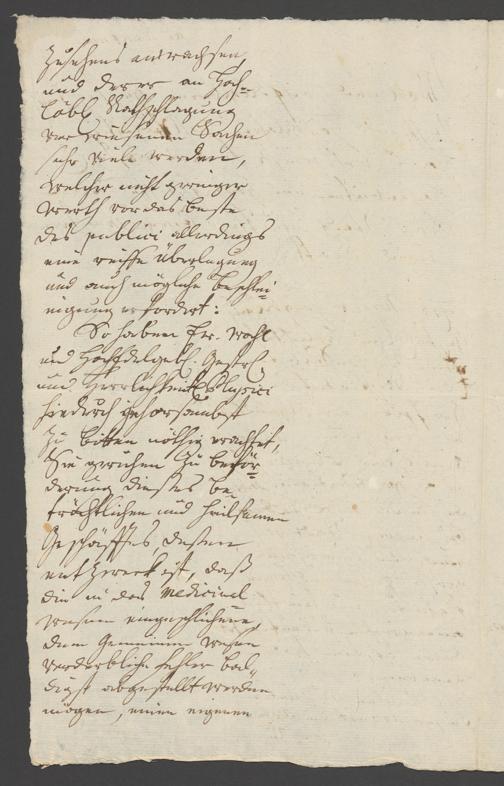 Zusehens anwachsen,
und derer an Hoch-
löbl. Rathschlagung
sehr viele werden,
welcher nicht geringer
werth vor das beste
des publici allerdings
eine reiffe Überlegung
und auch mögliche beschlei-
nigung erfordert:
So haben Ew. Wohl
und Hochedelgeb. Gestr.
und Herrlichkeit Physici
hiedurch gehorsambst
zu bitten nöthig erachtet,
Sie geruhen zu beför-
derung dieses be-
trächtlichen und heilsamen
Geschäfftes, dessen
entzweck ist, daß
die in das Medicinal
wesen eingeschlichene,
dem Gemeinen wesen
verderbliche fehler bal-
digst abgestellt werden
mögen, einen eigenen